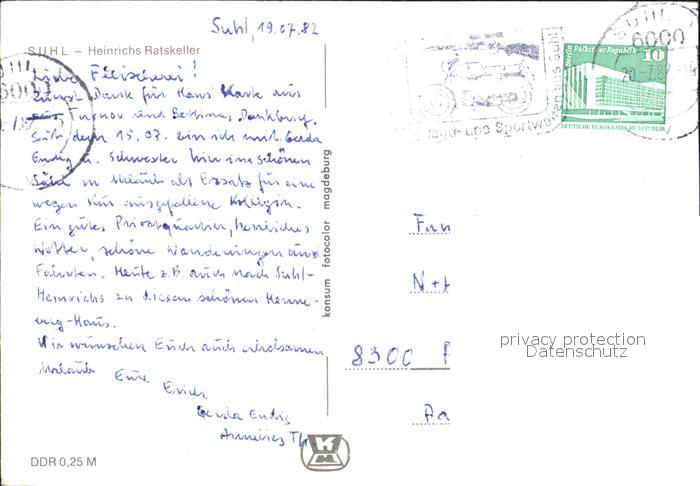 Suhl, 19.07.82
SUHL – Heinrichs Ratskeller
Liebe Fleischerei!
Dank für Hans Karte aus
und
Seit dem 15.07. bin ich mit Gerda
Endig u. Schwester hier im schönen
Suhl in Urlaub als Ersatz für eine
wegen Kur ausgefallene Kollegin.
Ein gutes Privatquartier, herrliches
Wetter, schöne Wanderungen und
Fahrten. Heute z.B. auch nach Suhl-
Heinrichs zu diesem schönen Henne-
berg-Haus.
Wir wünschen Euch auch erholsamen
Urlaub Eure
Erich
Gerda Endig
Annelies Th
DDR 0,25 M
konsum fotocolor magdeburg
SUHL
6000
20.-7.82
Jagd- und Sportwaffen aus SUHL
Berlin, Palast der Republik 10
DEUTSCHE DEMOKRATISCHE REPUBLIK
Fam
8300 P
privacy protection
Datenschutz